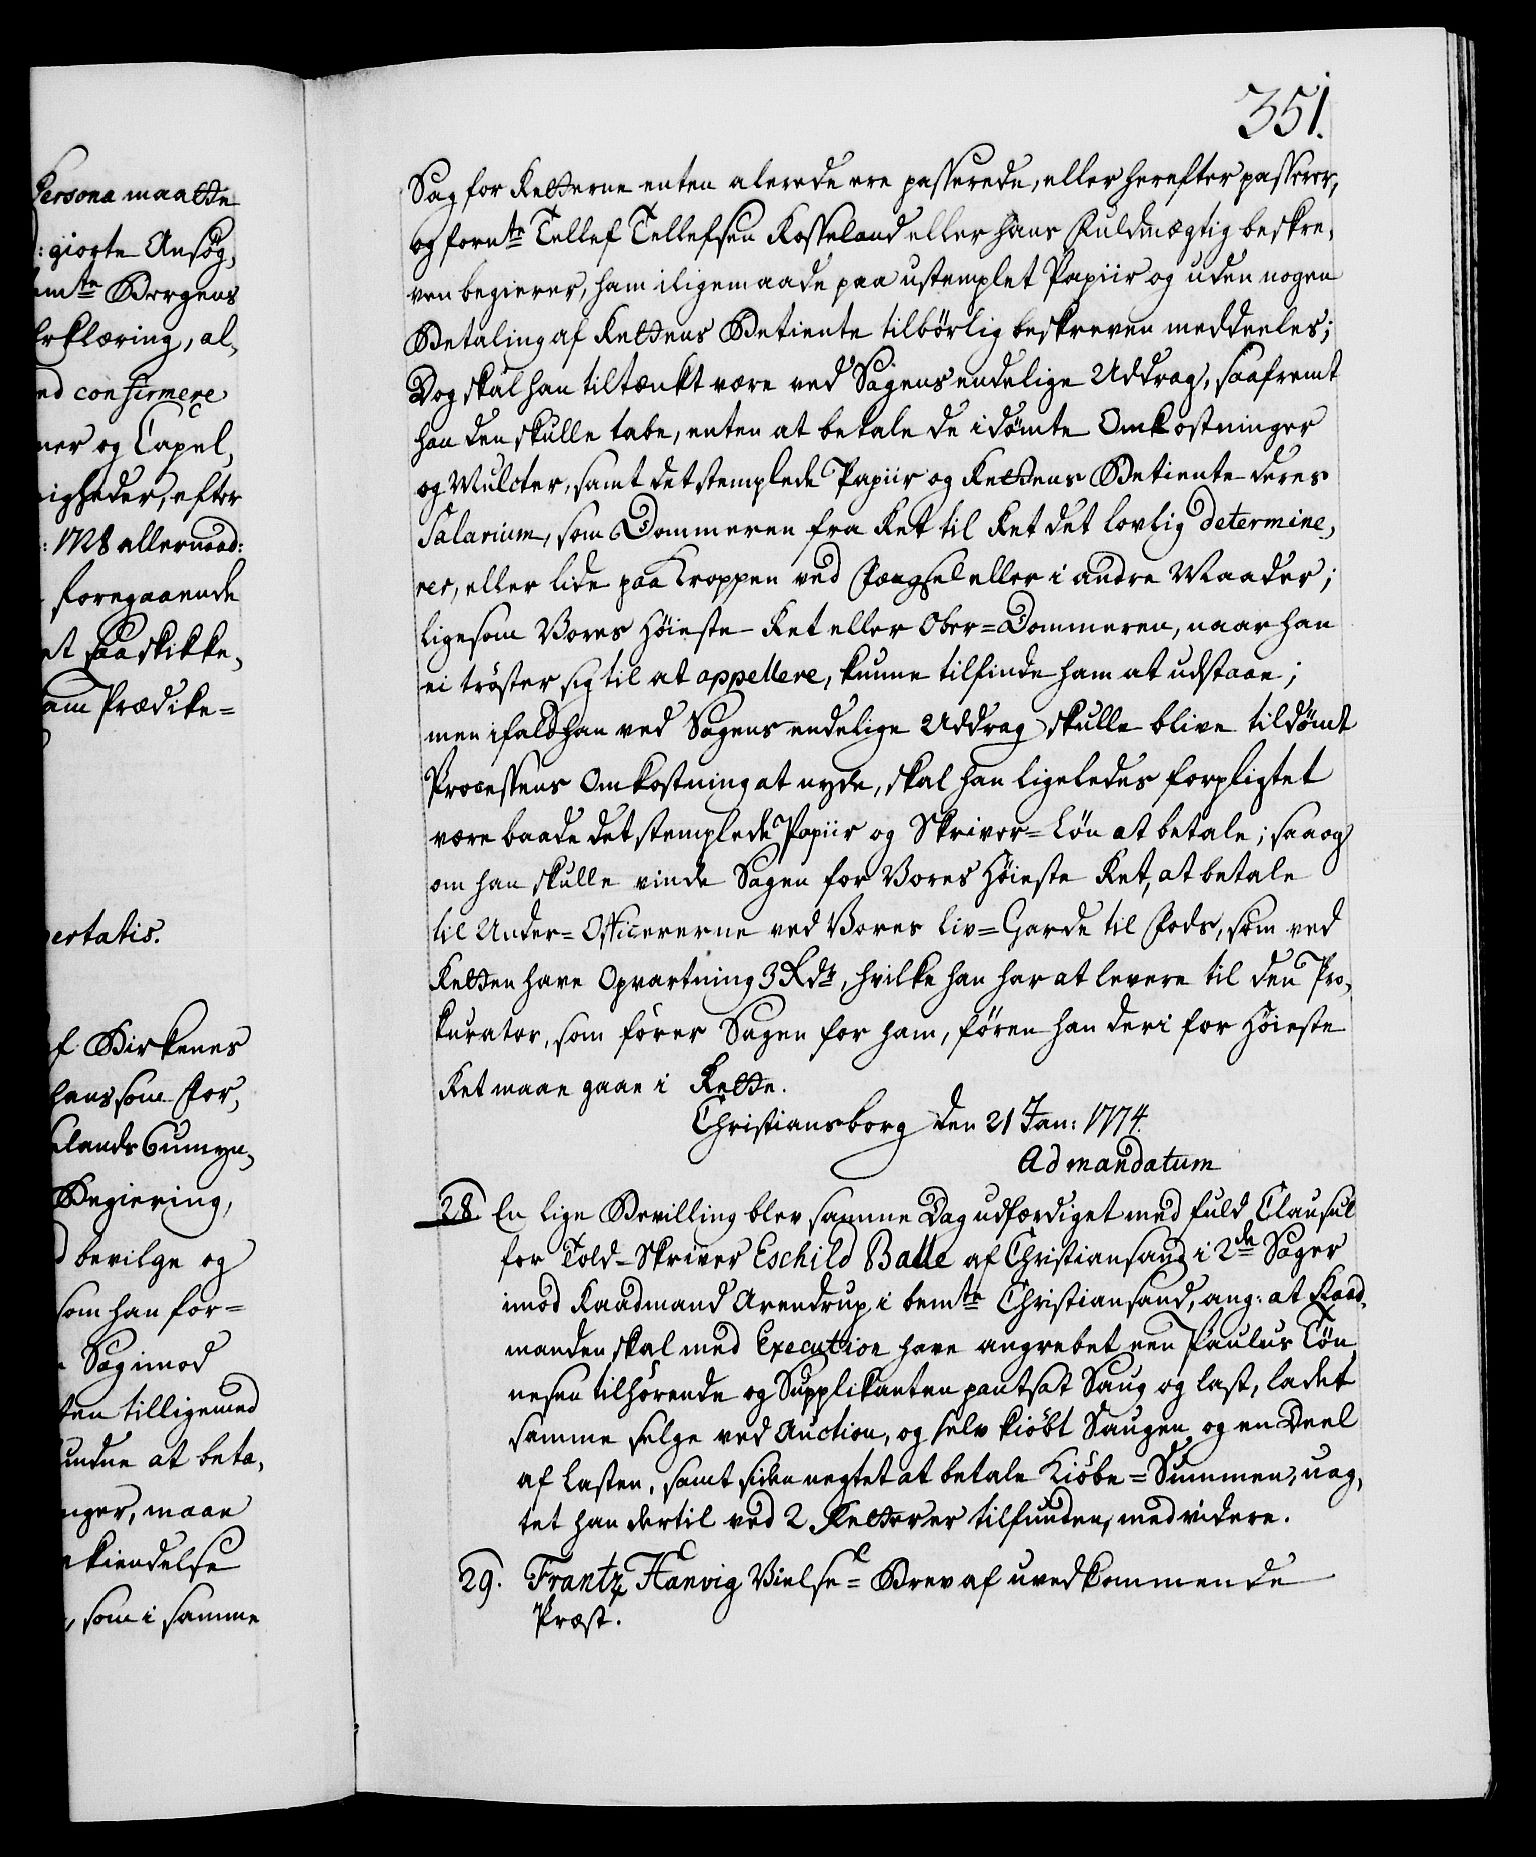 351.
Persona maatte
: giorte Ansøg,
mte Bergens
Erklæring, al,
ed confirmere
ner og Capel,
igheder, efter
: 1728 allernaad:
foregaaende
et saa skikke,
am Prædike=
ertatis.
f Birkenes
hans som For,
lands Gumyn,
Begiering,
d bevilge og
som han for=
Sag imod
ten tilligemed
undne at beta,
nger, maae
kiendelse
, som i samme
Sag for Retterne enten alerede ere passerede, eller herefter passerer,
og fornte Tellef Tellefsen Kosseland eller hans Fuldmægtig beskre,
ven begierer, ham iligemaade paa ustemplet Papiir og uden nogen
Betaling af Rettens Betiente tilbørlig beskreven meddeeles;
Dog skal han tiltænkt være ved Sagens endelige Uddrag, saafremt
han den skulle tabe, enten at betale de idømte Omkostninger
og Mulcter, samt det stemplede Papiir og Rettens Betiente deres
Salarium, som Dommeren fra Ret til Ret det lovlig determine,
rer, eller lide paa Kroppen ved Fængsel eller i andre Maader;
ligesom Vores Høieste Ret eller Ober=Dommeren, naar han
ei trøster sig til at appellere, kunne tilfinde ham at udstaae;
men ifald han ved Sagens endelige Uddrag skulle blive tildømt
Processens Omkostning at nyde, skal han ligeledes forpligtet
være baade det stemplede Papiir og Skriver=Løn at betale; saa og
om han skulle vinde Sagen for Vores Høieste Ret, at betale
til Under=Officererne ved Vores Liv=Garde til Fods, som ved
Retten have Opvartning 3 Rdr, hvilke han har at levere til den Pro,
kurator, som fører Sagen for ham, føren han deri for Høieste
Ret maae gaae i Rette.
Christiansborg den 21 Jan: 1774.
Ad mandatum
28 En lige Bevilling blev samme Dag udfærdiget med fuld Clausul
for Told=Skriver Eschild Balle af Christiansand i 2de Sager
imod Raadmand Arendrup i bemte Christiansand, ang: at Raad,
manden skal med Execution have angrebet een Paulus Tøn,
nesen tilhørende og Supplikanten pantsat Saug og Last, ladet
samme selge ved Auction, og selv kiøbt Saugen og en Deel
af Lasten, samt siden negtet at betale Kiøbe=Summen, uag,
tet han dertil ved 2 Retter er tilfunden, med videre.
29. Frantz Hanvig Vielse=Brev af uvedkommende
Præst.